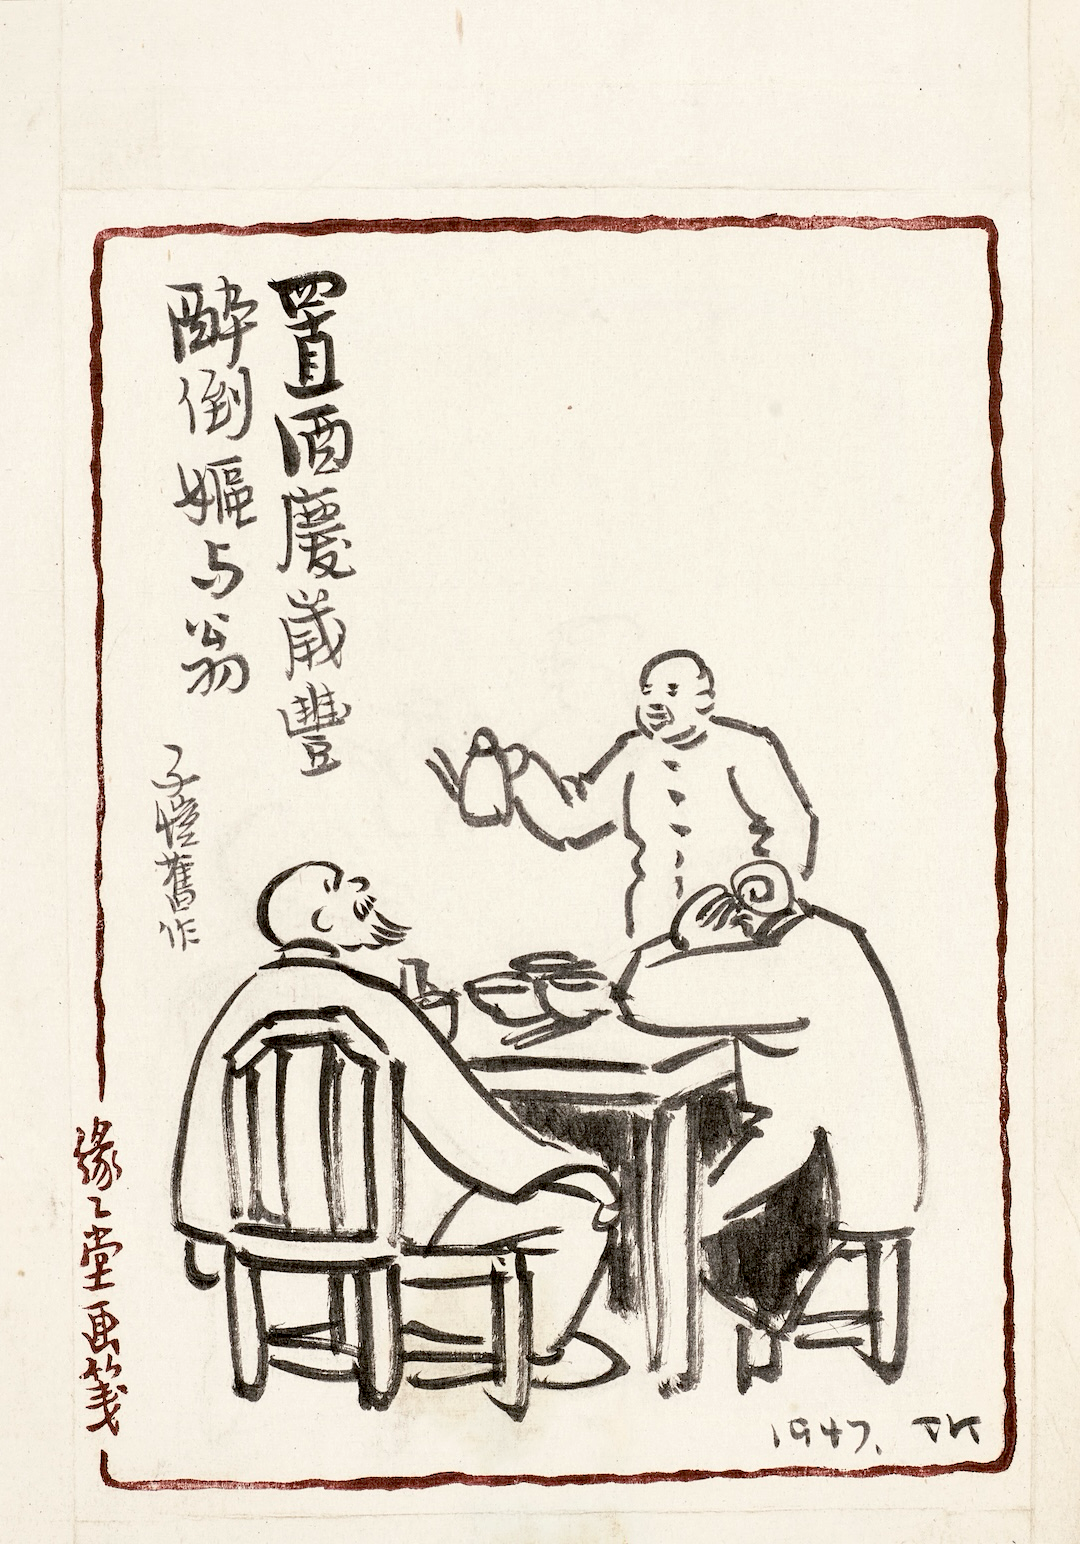 置酒慶歲豐
醉倒嫗与翁
子愷舊作
緣〻堂画箋
1947. TK